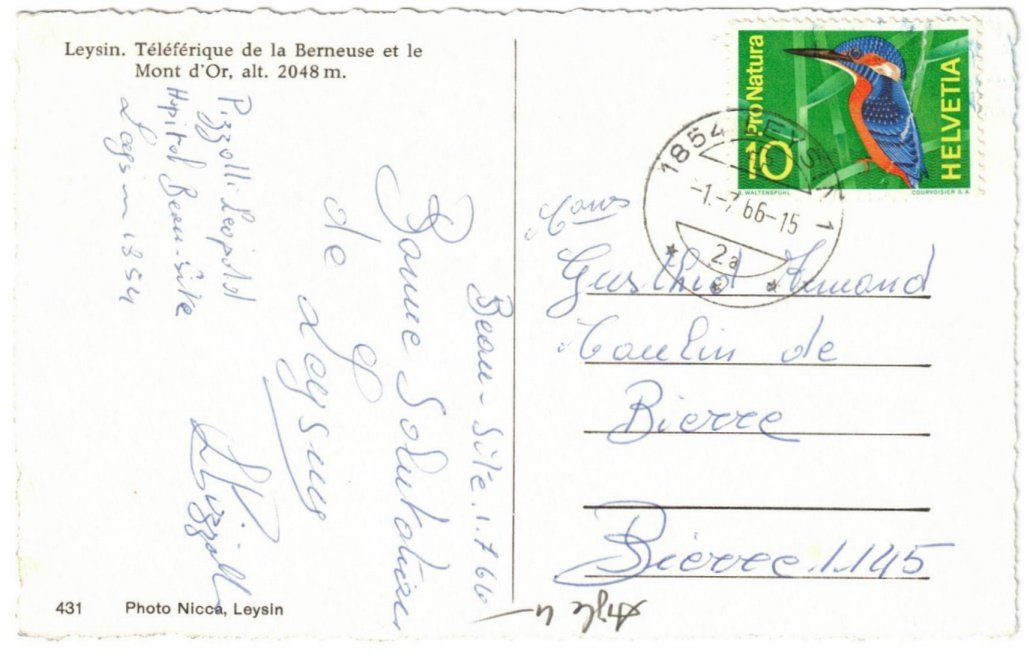 Leysin. Téléférique de la Berneuse et le
Mont d'Or, alt. 2048 m.
Pizzolli Leopold
Hopital Beau-Site
Leysin 1854
Beau-Site. 1.7.66
Bonne Salutation
de
Leysin
L Pizzolli
431 Photo Nicca, Leysin
Pro Natura
10
HELVETIA
H. WALTENSPÜHL COURVOISIER S.A.
1854 LEYSIN 1
-1.-7.66-15
2a
Armand
Moulin de
Bierre
Bierre 1145